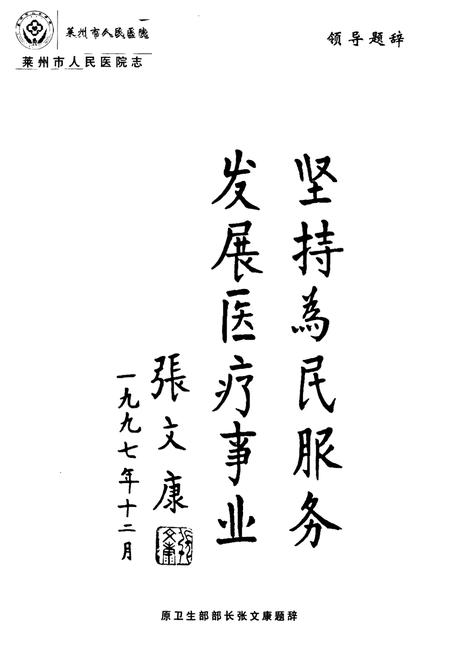 莱州市人民医院
莱州市人民医院志
领导题辞
坚持為民服务
发展医疗事业
張文康
一九九七年十二月
張文康
原卫生部部长张文康题辞